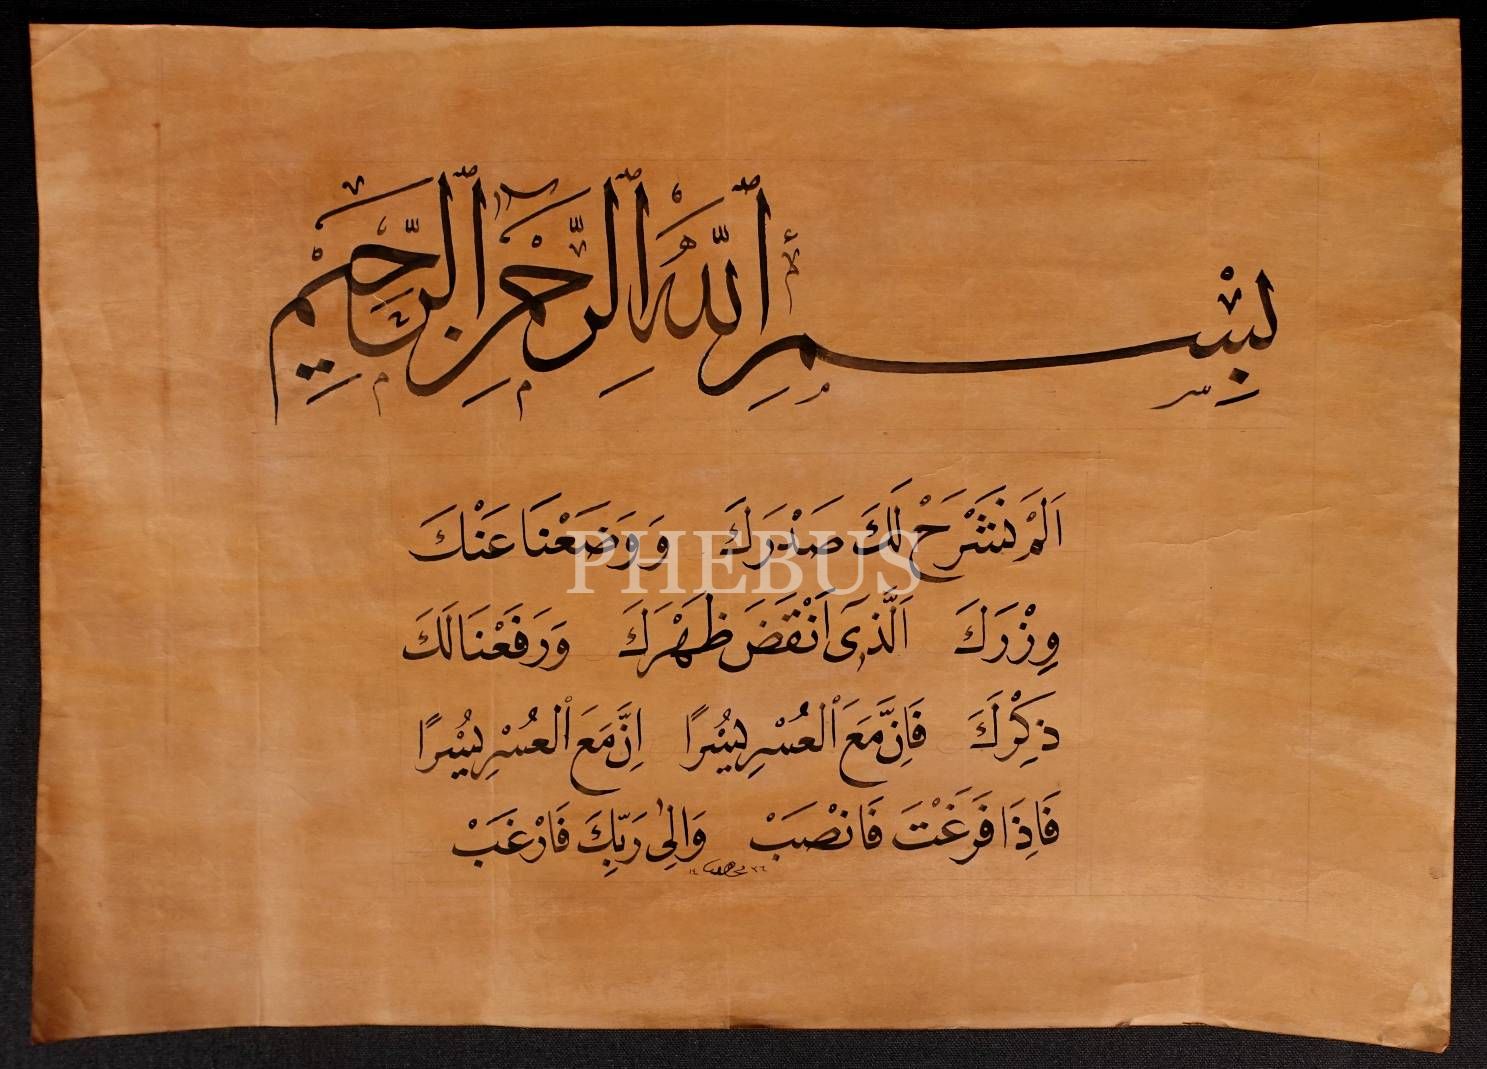 بِسْمِ ٱللّٰهِ ٱلرَّحْمٰنِ ٱلرَّحِيمِ
اَلَمْ نَشْرَحْ لَكَ صَدْرَكَ وَوَضَعْنَا عَنْكَ
PHEBUS
وِزْرَكَ اَلَّذٖىَ اَنْقَضَ ظَهْرَكَ وَرَفَعْنَا لَكَ
ذِكْرَكَ فَاِنَّ مَعَ ٱلْعُسْرِ يُسْرًا اِنَّ مَعَ ٱلْعُسْرِ يُسْرًا
فَاِذَا فَرَغْتَ فَانْصَبْ وَاِلٰى رَبِّكَ فَارْغَبْ